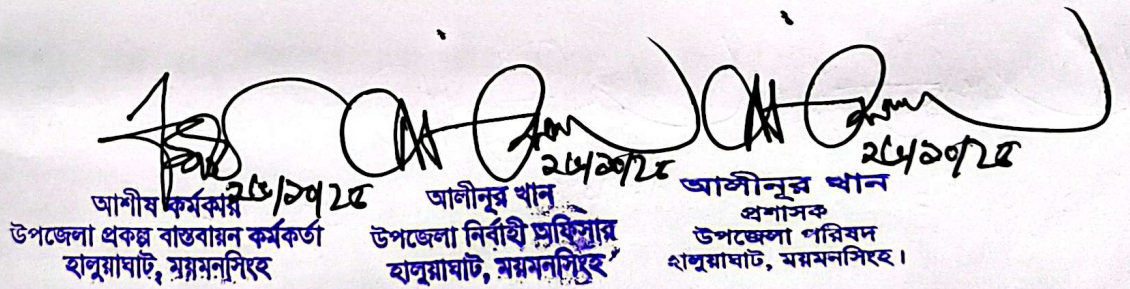 আশীষ কর্মকার
উপজেলা প্রকল্প বাস্তবায়ন কর্মকর্তা
হালুয়াঘাট, ময়মনসিংহ
আলীনূর খান
উপজেলা নির্বাহী অফিসার
হালুয়াঘাট, ময়মনসিংহ
আলীনূর খান
প্রশাসক
উপজেলা পরিষদ
হালুয়াঘাট, ময়মনসিংহ।